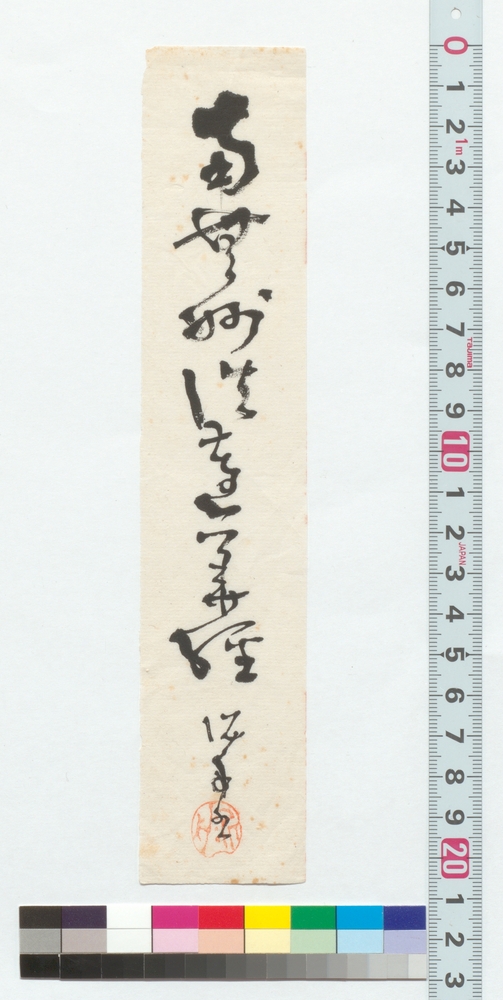 南無妙法蓮華経
0
1
2
1m
3
4
5
6
7
Tajima
8
9
10
1
2
JAPAN
3
4
5
6
7
8
9
20
1
2
3